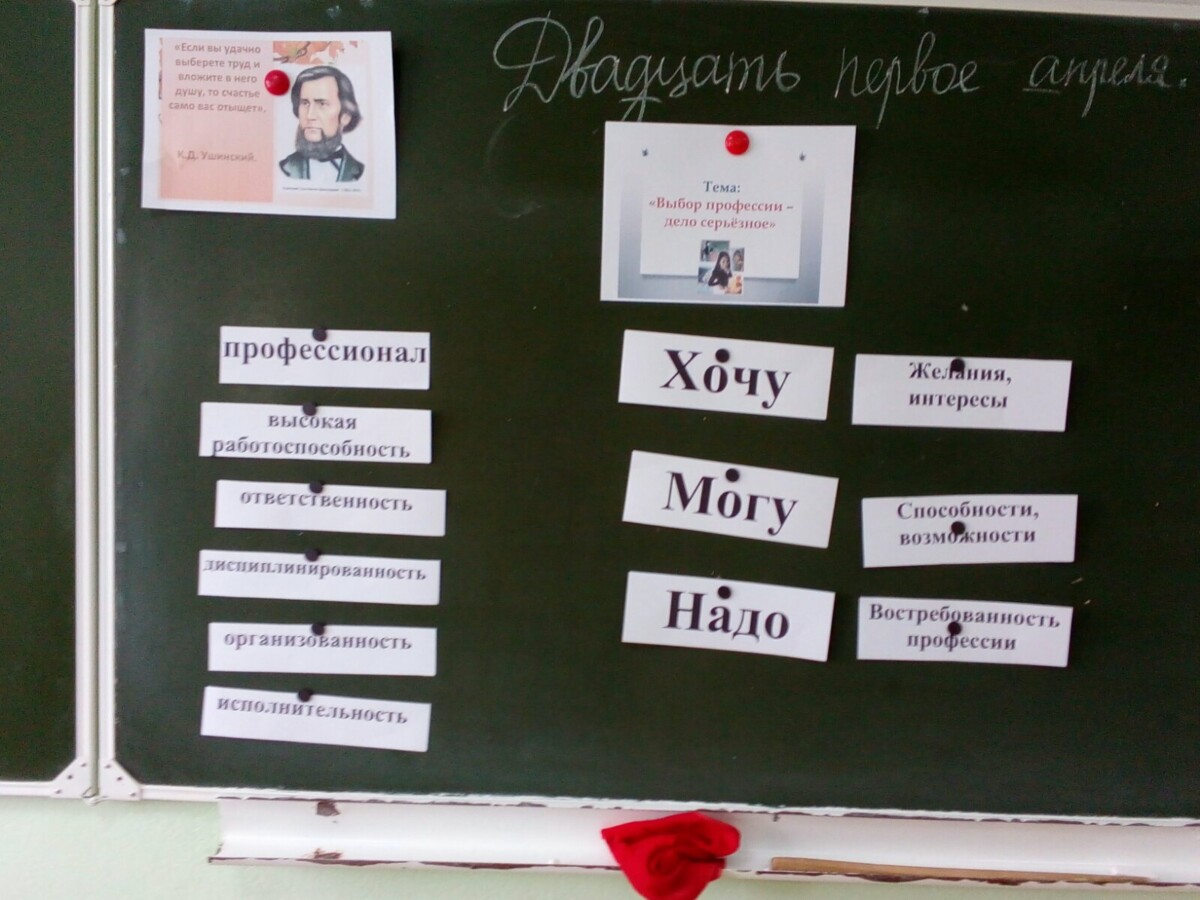 Двадцать первое апреля.
«Если вы удачно
выберете труд и
вложите в него
душу, то счастье
само вас отыщет».
К.Д. Ушинский.
Тема:
«Выбор профессии –
дело серьёзное»
профессионал
высокая
работоспособность
ответственность
дисциплинированность
организованность
исполнительность
Хочу
Желания,
интересы
Могу
Способности,
возможности
Надо
Востребованность
профессии